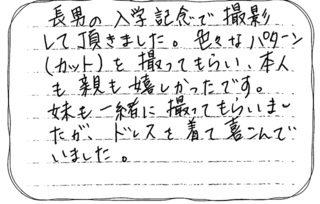 長男の入学記念で撮影
して頂きました。色々なパターン
(カット)を撮ってもらい、本人
も親も嬉しかったです。
妹も一緒に撮ってもらいまし
たが、ドレスを着て喜こんで
いました。